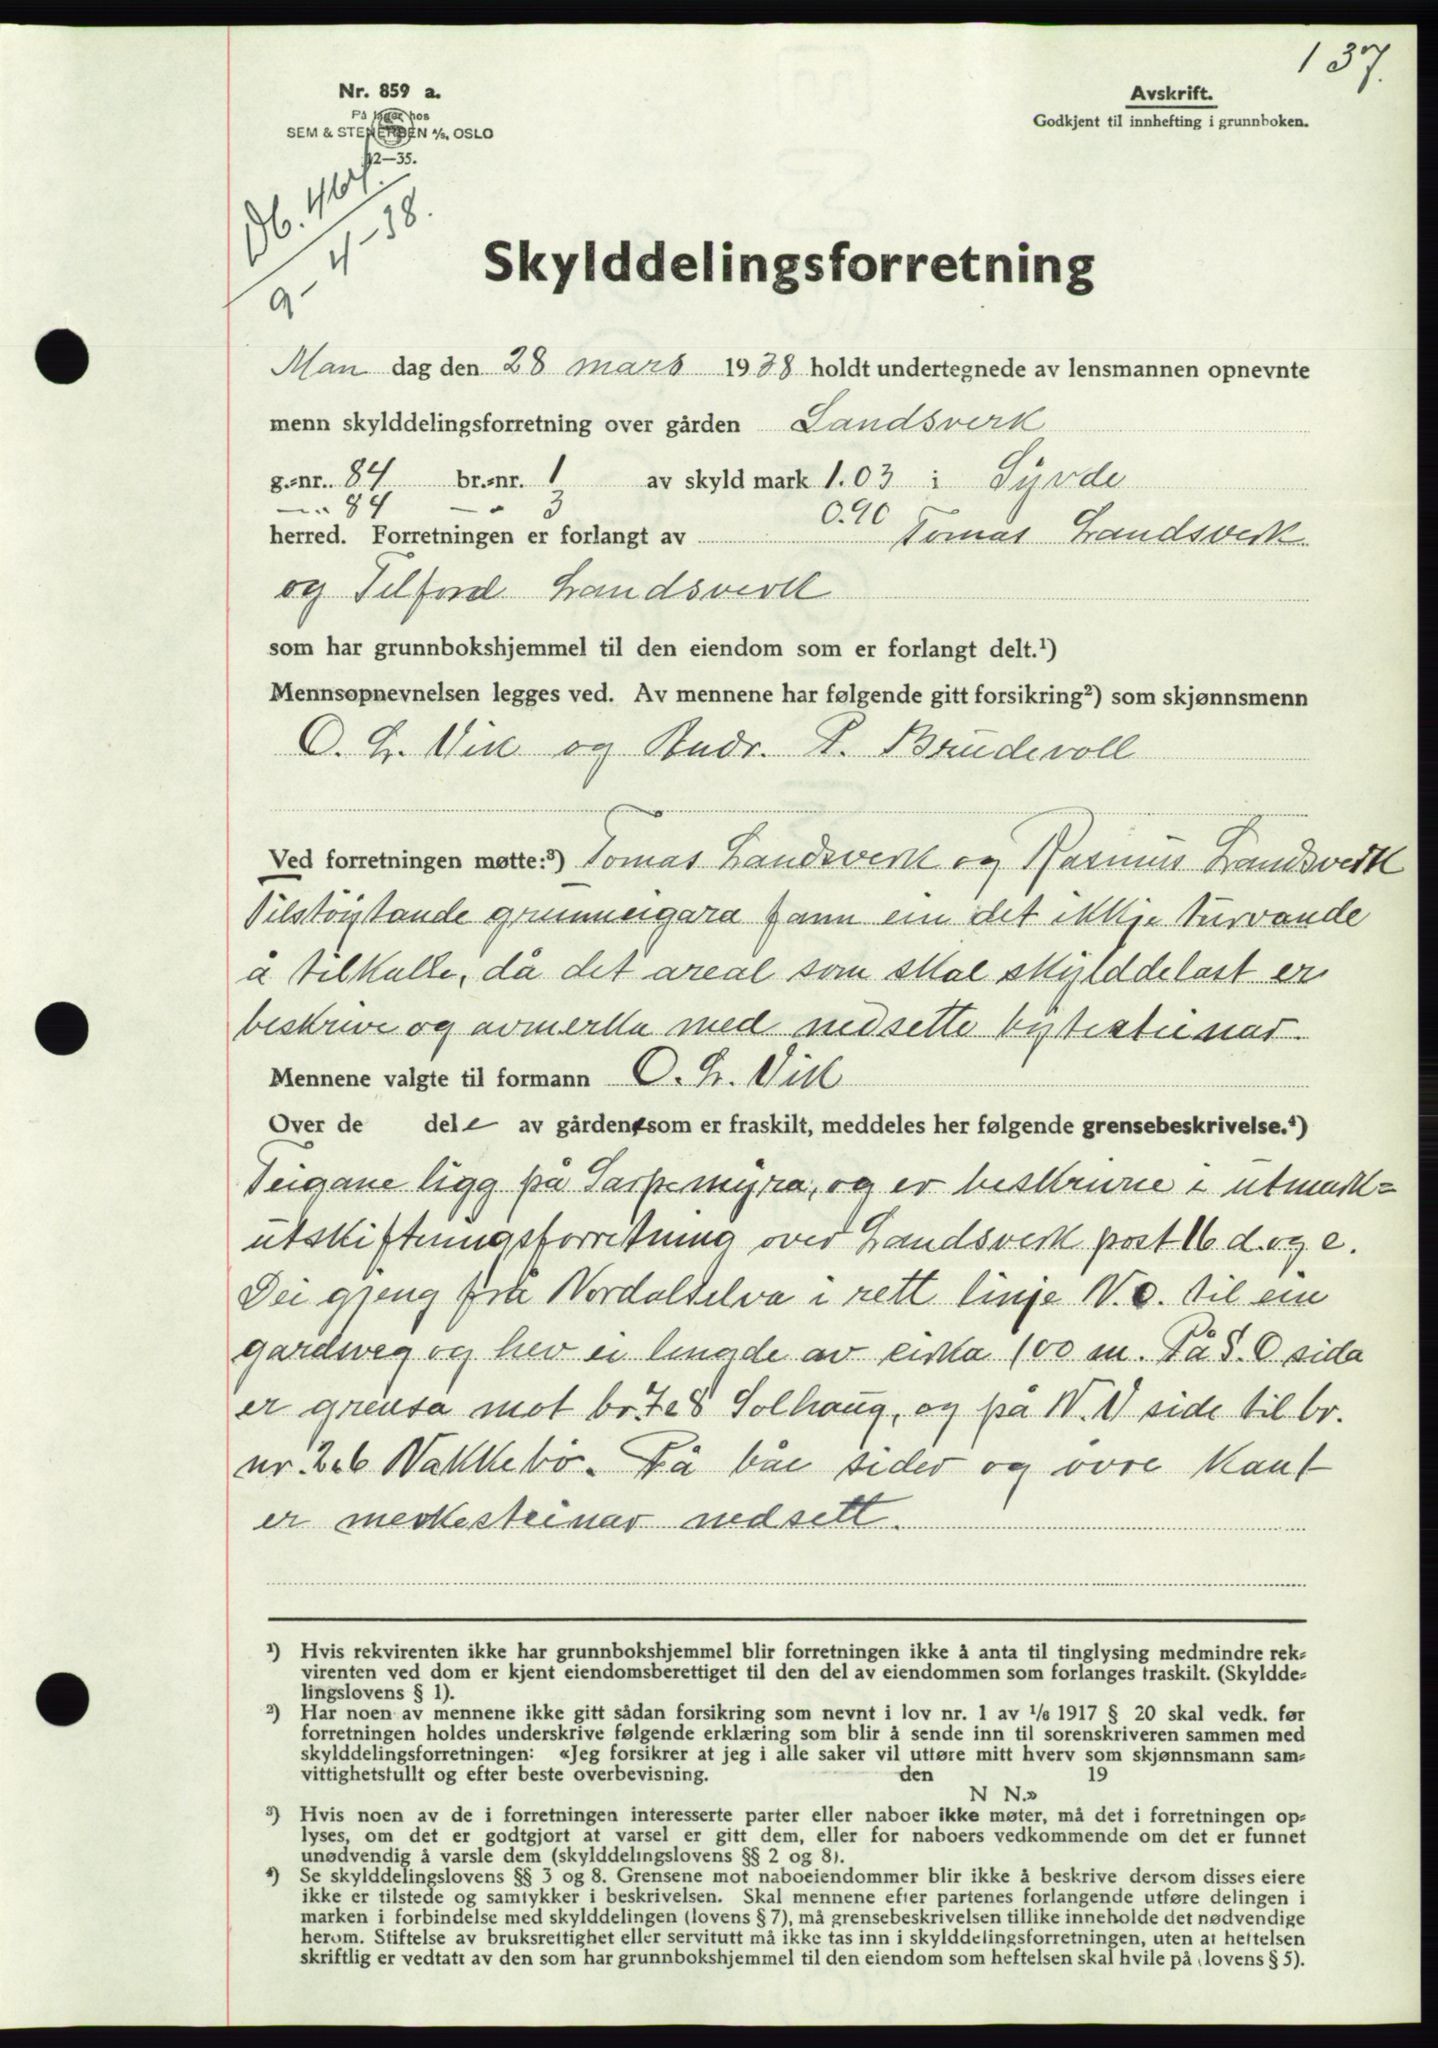 137.
Nr. 859 a.
På lager hos
SEM & STENERSEN A/S, OSLO
12—35.
Avskrift.
Godkjent til innhefting i grunnboken.
Db. 464.
9-4-38.
Skylddelingsforretning
Man dag den 28 mars 1938 holdt undertegnede av lensmannen opnevnte
menn skylddelingsforretning over gården Landsverk
g.=nr. 84 br.=nr. 1 av skyld mark 1.03 i Syvde
—"— 84 —"— 3 0.90
herred. Forretningen er forlangt av Tomas Landsverk
og Tilford Landsverk
som har grunnbokshjemmel til den eiendom som er forlangt delt.¹)
Mennsopnevnelsen legges ved. Av mennene har følgende gitt forsikring²) som skjønnsmenn
O. L. Vik og Andr. P. Brudevoll
Ved forretningen møtte:³) Tomas Landsverk og Rasmus Landsverk
Tilstøytande grunneigara fann ein det ikkje turvande
å tilkalle, då det areal som skal skylddelast er
beskrive og avmerka med nedsette bytesteinar.
Mennene valgte til formann O. L. Vik
Over de dele av gårdene som er fraskilt, meddeles her følgende grensebeskrivelse.⁴)
Teigane ligg på Sarpemyra, og er beskrivne i utmark=
utskiftningsforretning over Landsverk post 16 d. og e.
Dei gjeng frå Nordalselva i rett linje N.O. til ein
gardsveg og hev ei lengde av cirka 100 m. På S.O sida
er grensa mot br. 7 e 8 Solhaug, og på N.V side til br.
nr. 2.6 Nakkebø. På båe sider og øvre kant
er merkesteinar nedsett.
¹) Hvis rekvirenten ikke har grunnbokshjemmel blir forretningen ikke å anta til tinglysing medmindre rek=
virenten ved dom er kjent eiendomsberettiget til den del av eiendommen som forlanges fraskilt. (Skyldde=
lingslovens § 1).
²) Har noen av mennene ikke gitt sådan forsikring som nevnt i lov nr. 1 av 1/6 1917 § 20 skal vedk. før
forretningen holdes underskrive følgende erklæring som blir å sende inn til sorenskriveren sammen med
skylddelingsforretningen: «Jeg forsikrer at jeg i alle saker vil utføre mitt hverv som skjønnsmann sam=
vittighetsfullt og efter beste overbevisning. den 19
N N.»
³) Hvis noen av de i forretningen interesserte parter eller naboer ikke møter, må det i forretningen op=
lyses, om det er godtgjort at varsel er gitt dem, eller for naboers vedkommende om det er funnet
unødvendig å varsle dem (skylddelingslovens §§ 2 og 8).
⁴) Se skylddelingslovens §§ 3 og 8. Grensene mot naboeiendommer blir ikke å beskrive dersom disses eiere
ikke er tilstede og samtykker i beskrivelsen. Skal mennene efter partenes forlangende utføre delingen i
marken i forbindelse med skylddelingen (lovens § 7), må grensebeskrivelsen tillike inneholde det nødvendige
herom. Stiftelse av bruksrettighet eller servitutt må ikke tas inn i skylddelingsforretningen, uten at heftelsen
skriftlig er vedtatt av den som har grunnbokshjemmel til den eiendom som heftelsen skal hvile på (lovens § 5).